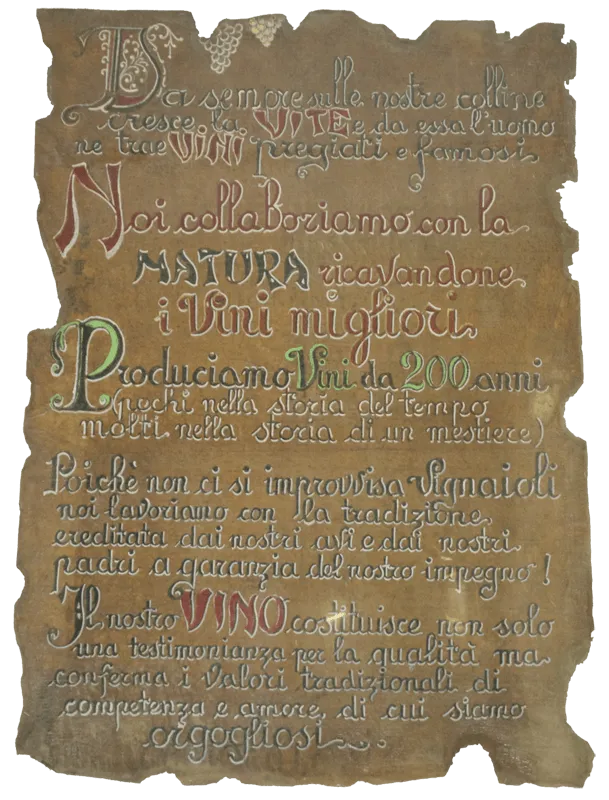 Da sempre sulle nostre colline
cresce la VITE e da essa l'uomo
ne trae VINI pregiati e famosi.
Noi collaboriamo con la
NATURA ricavandone
i Vini migliori.
Produciamo Vini da 200 anni
(pochi nella storia del tempo
molti nella storia di un mestiere)
Poichè non ci si improvvisa Vignaioli
noi lavoriamo con la tradizione
ereditata dai nostri avi e dai nostri
padri a garanzia del nostro impegno!
Il nostro VINO costituisce non solo
una testimonianza per la qualità ma
conferma i valori tradizionali di
competenza e amore, di cui siamo
orgogliosi...